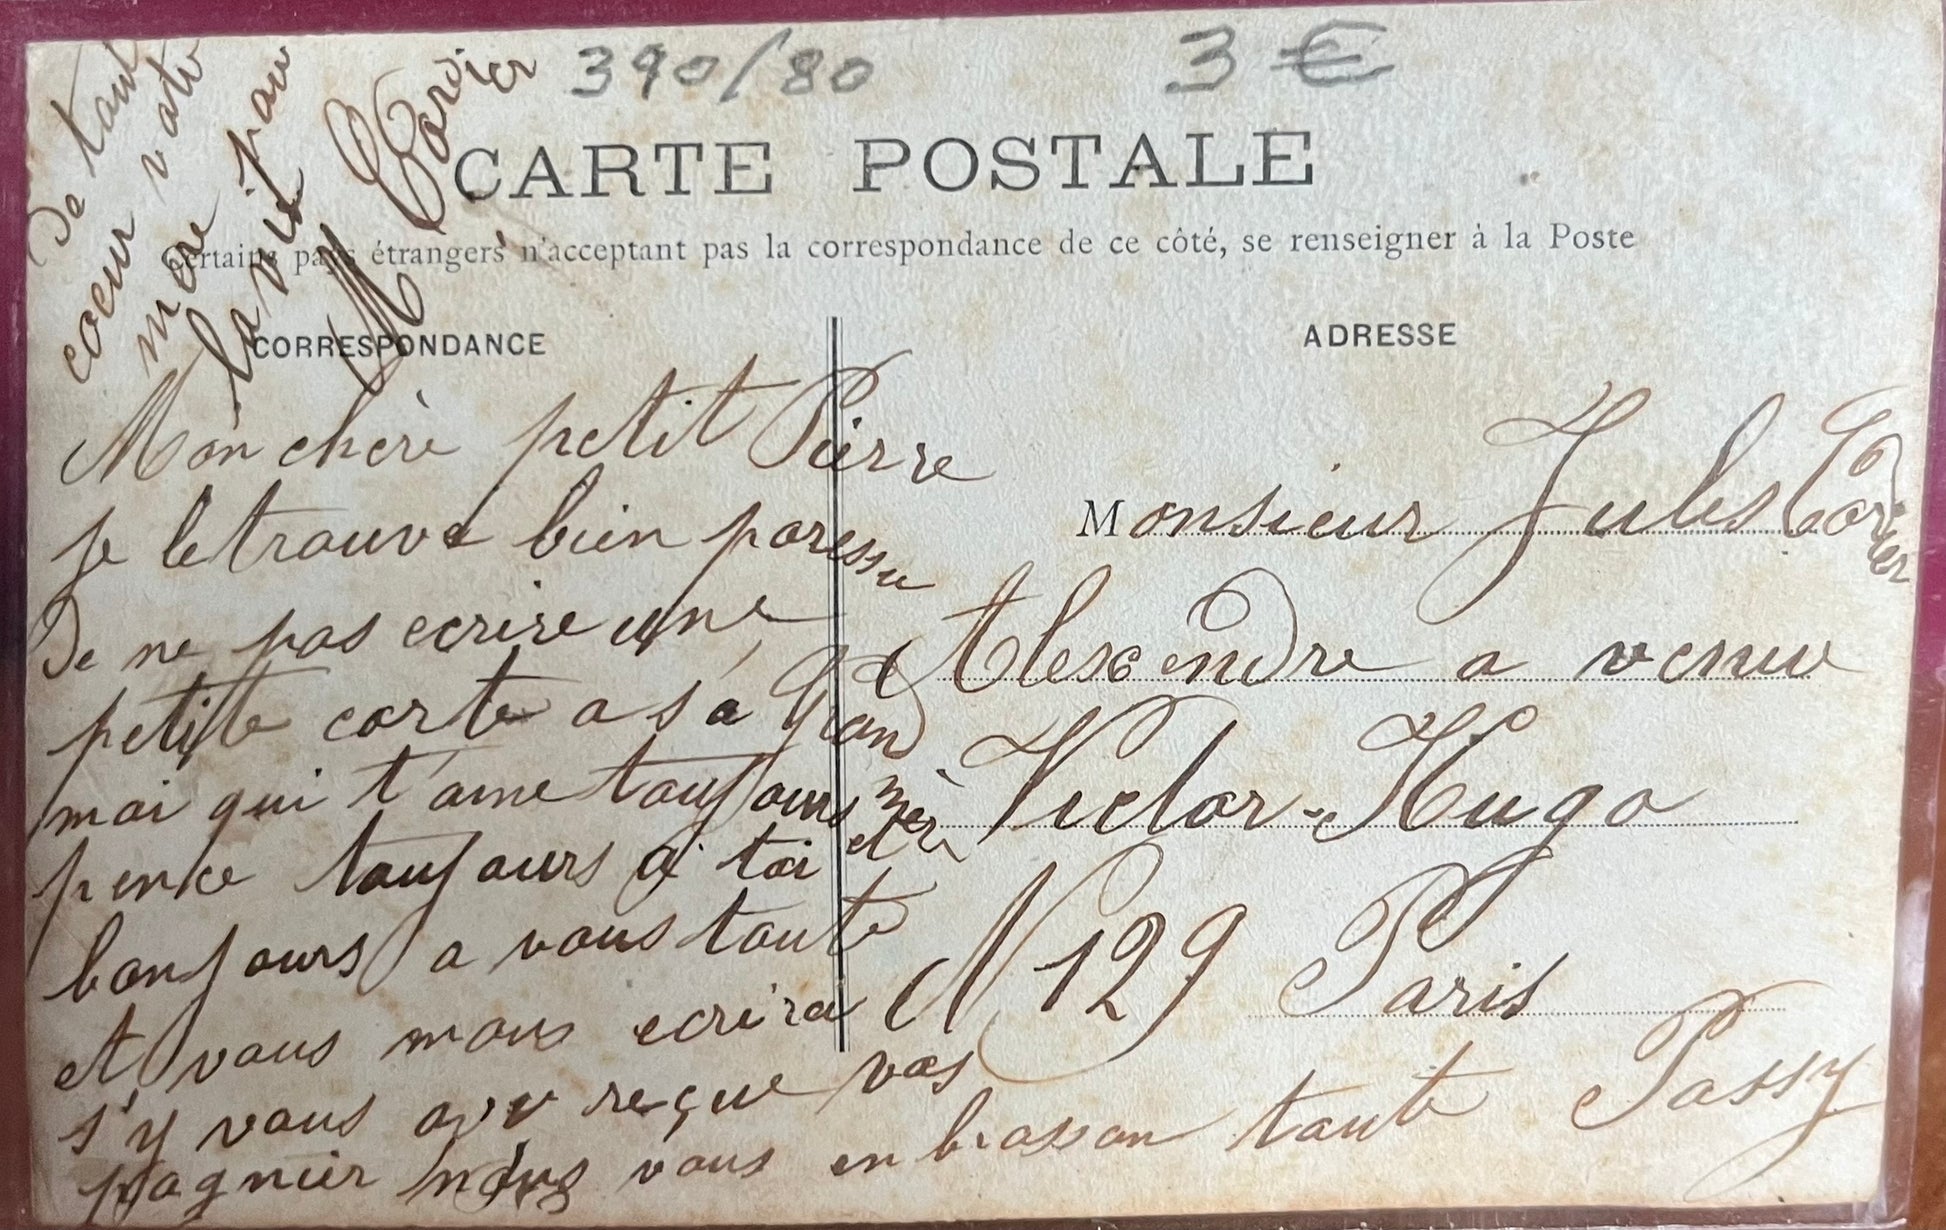 390/80
3 €
CARTE POSTALE
Certains pays étrangers n'acceptant pas la correspondance de ce côté, se renseigner à la Poste
CORRESPONDANCE
ADRESSE
Mon cherè petit Pierre
je te trouve bien paressu
de ne pas ecrire une
petite carte a sa Grand
mèr
moi qui t'aime toujours et
pence toujours a toi
bonjours a vous toute
et vous mous ecrira
s'y vous avv reçue vos
pagnier nous vous en brasson toute
de tout
coeur votre
mere pour
la vie
M Corvier
Monsieur Jules Corvier
Alexendre a venue
Victor-Hugo
N 129 Paris
Passy